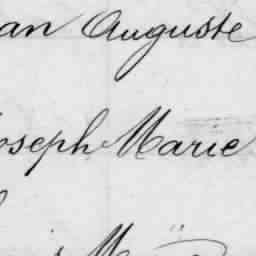 an Auguste
oseph Marie